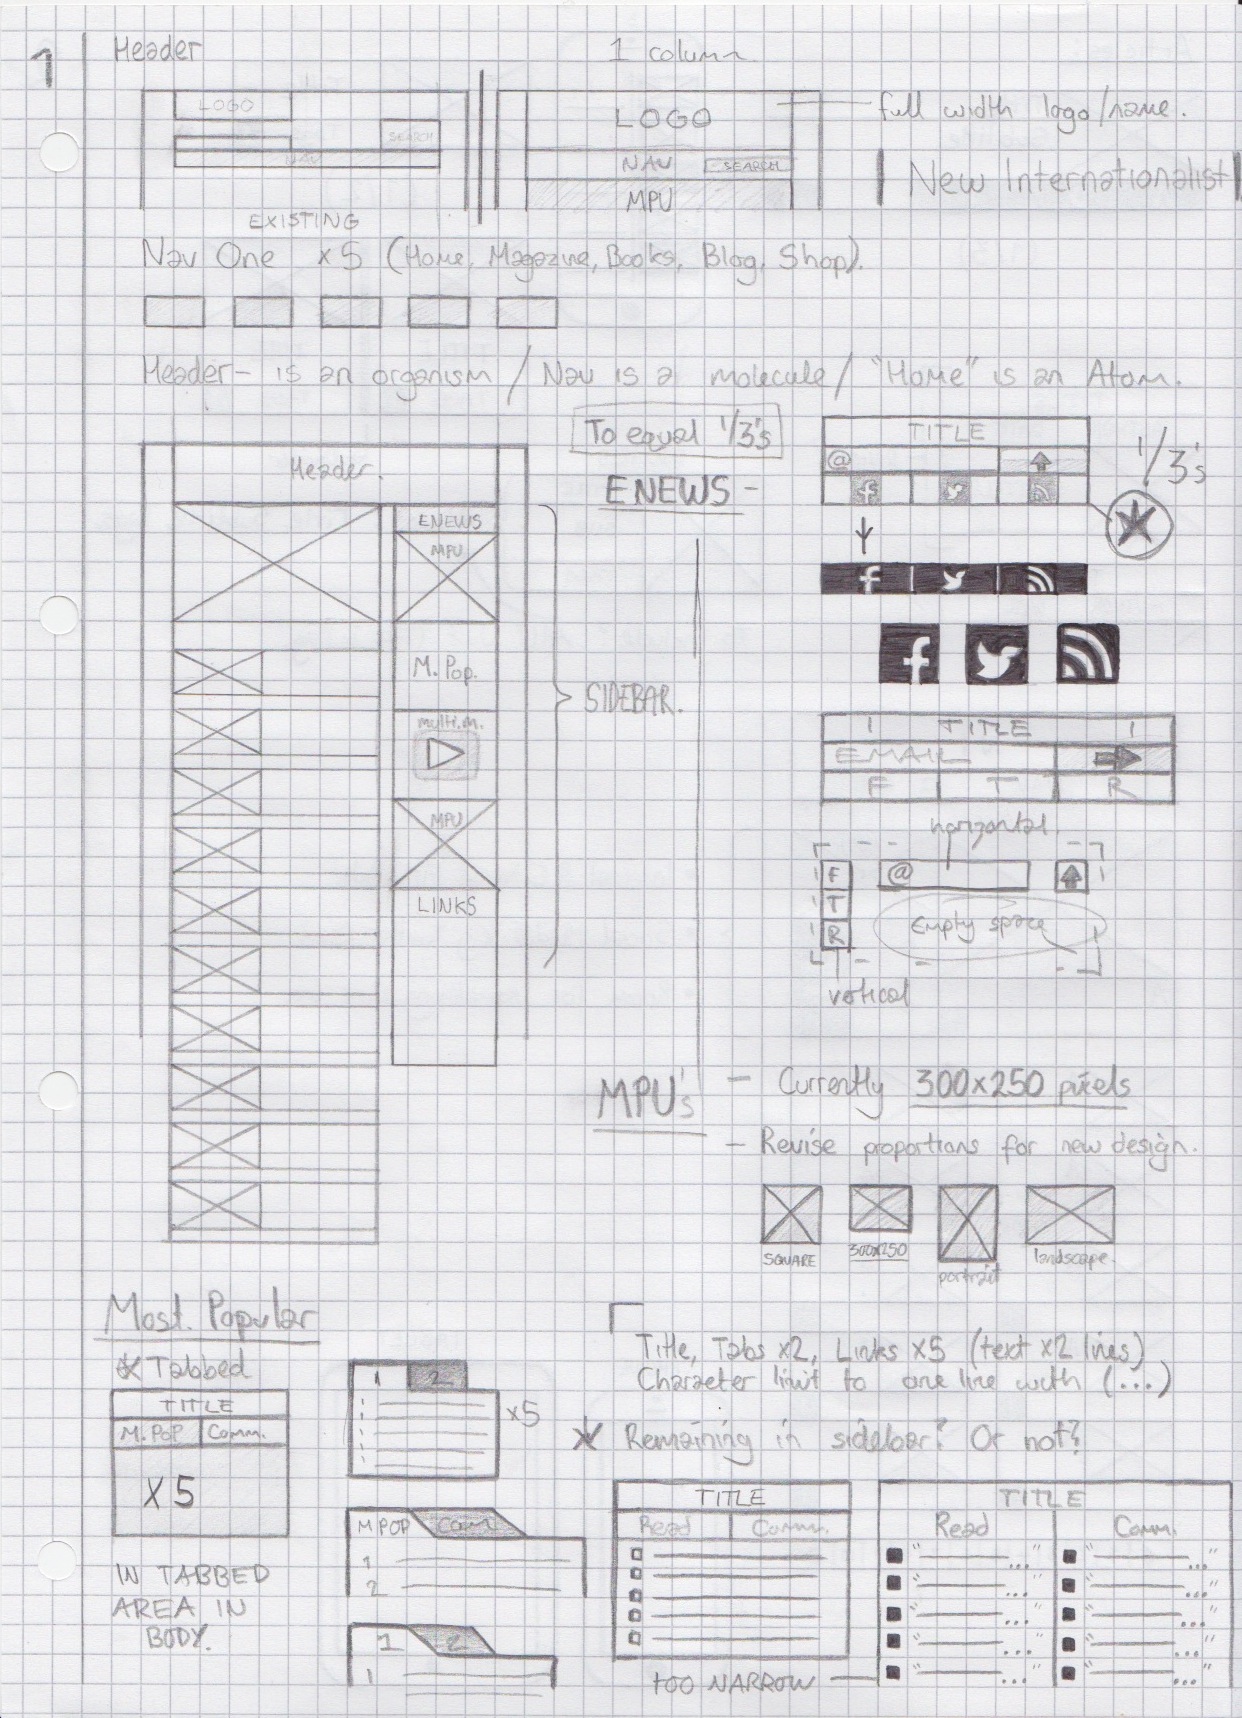 1
Header
1 column
LOGO
SEARCH
NAV
EXISTING
LOGO
NAV
SEARCH
MPU
full width logo/name.
New Internationalist
Nav One x5 (Home, Magazine, Books, Blog, Shop).
Header- is an organism / Nav is a molecule / "Home" is an Atom.
To equal 1/3's
Header.
ENEWS
MPU
M. Pop.
multi.m.
MPU
LINKS
SIDEBAR.
ENEWS -
TITLE
@
1/3's
TITLE
EMAIL
F T R
horizontal.
F
T
R
@
Empty space
vertical
MPU's - Currently 300x250 pixels
- Revise proportions for new design.
SQUARE
300x250
portrait
landscape.
Most Popular
Tabbed
TITLE
M.POP Comm.
x5
IN TABBED
AREA IN
BODY.
1 2
x5
M POP Comm
1
2
1 2
1
Title, Tabs x2, Links x5 (text x2 lines)
Character limit to one line with (...)
Remaining in sidebar? Or not?
TITLE
Read Comm.
TITLE
Read Comm.
"...
"
TOO NARROW